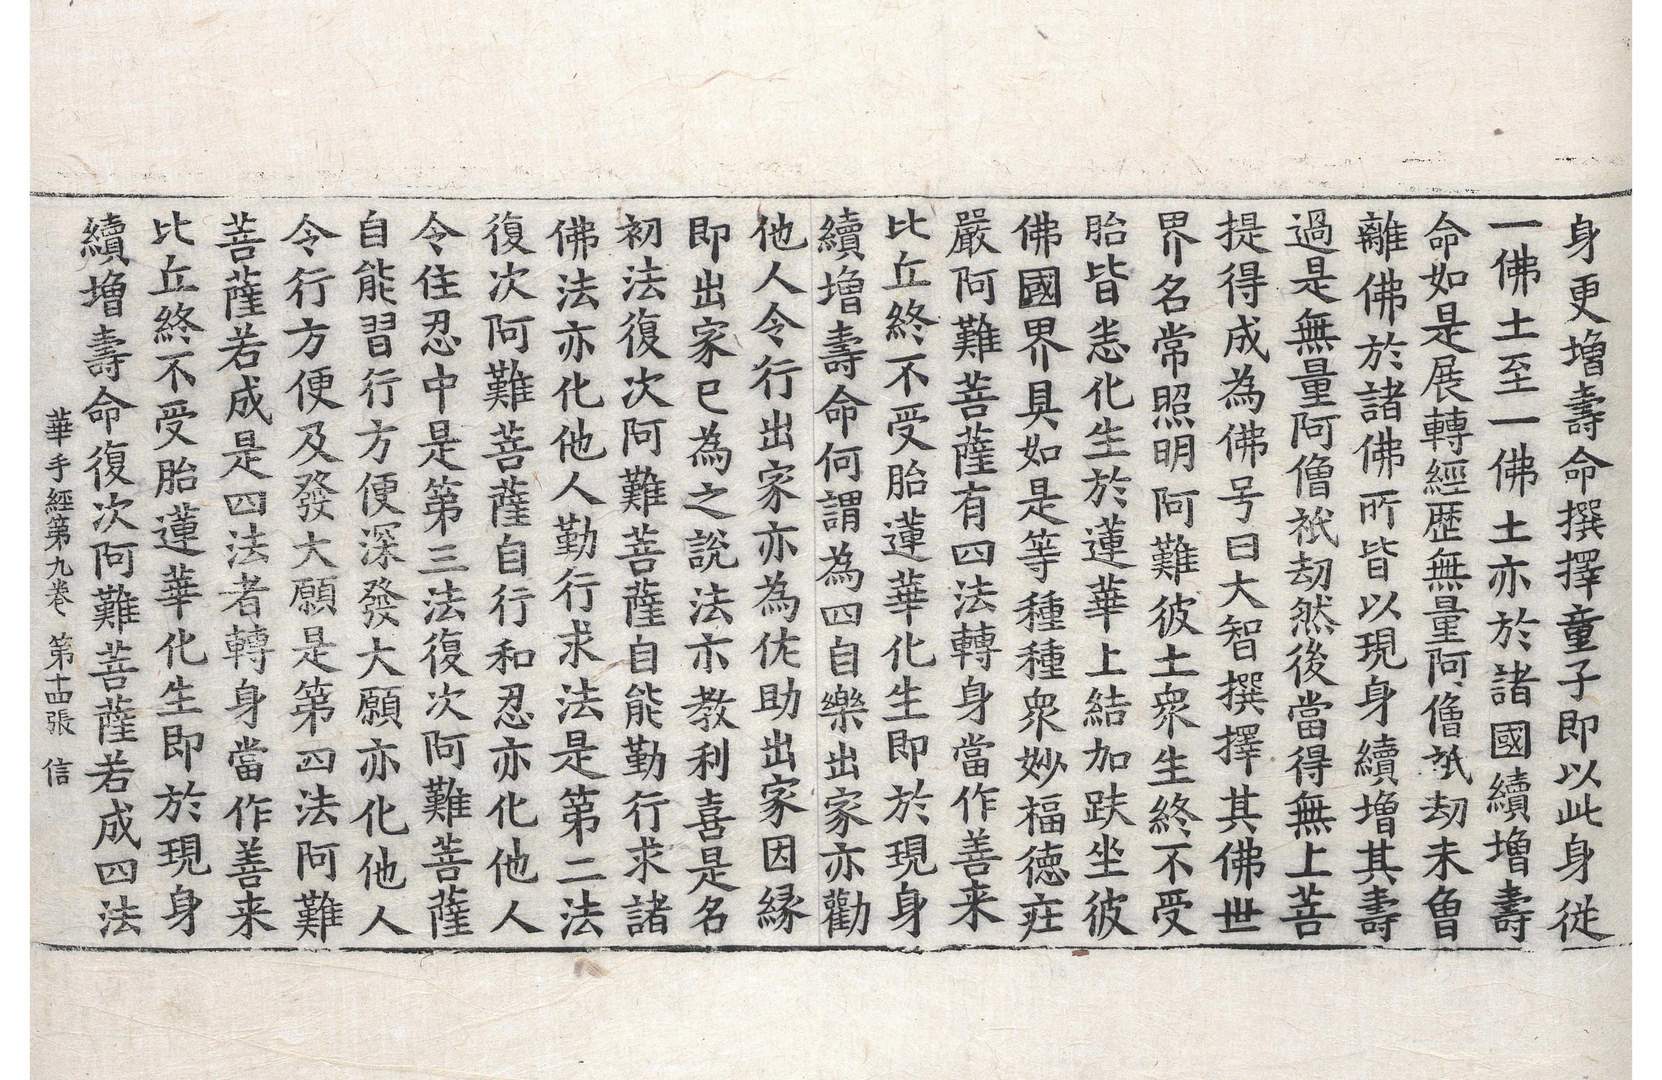 身更増壽命撰擇童子即以此身従
一佛土至一佛土亦於諸國續増壽
命如是展轉經歴無量阿僧祇劫未曾
離佛於諸佛所皆以現身續増其壽
過是無量阿僧祇劫然後當得無上菩
提得成為佛号曰大智撰擇其佛世
界名常照明阿難彼土衆生終不受
胎皆悉化生於蓮華上結加趺坐彼
佛國界具如是等種種衆妙福德疰
嚴阿難菩薩有四法轉身當作善来
比丘終不受胎蓮華化生即於現身
續増壽命何謂為四自樂出家亦勸
他人令行出家亦為佐助出家因縁
即出家已為之說法亦教利喜是名
初法復次阿難菩薩自能勤行求諸
佛法亦化他人勤行求法是第二法
復次阿難菩薩自行和忍亦化他人
令住忍中是第三法復次阿難菩薩
自能習行方便深發大願亦化他人
令行方便及發大願是第四法阿難
菩薩若成是四法者轉身當作善来
比丘終不受胎蓮華化生即於現身
續増壽命復次阿難菩薩若成四法
華手經第九卷 第十四張 信